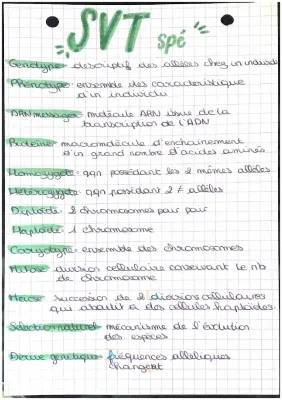 SVT spé
Genotype: descriptif des allèles chez un individu
Phenotype: ensemble des caracteristique
d'un individu
ARN messager: molécule ARN issue de la
transcription de l'ADN
Proteine: macromolécule d'enchainement
d'un grand nombre d'acides aminés
Homozygote: qqn possédant les 2 mêmes allèles
Heterozygote: qqn possédant 2 ≠ allèles
Diploïde: 2 chromosomes par pair
Haploïde: 1 chromosome
Caryotype: ensemble des chromosomes
Mitose: division cellulaire conservant le nb
de chromosome
Meiose: succession de 2 divisions cellulaires
qui aboutit à des cellules haploïdes.
Sélection naturel: mécanisme de l'évolution
des espèces
Derive genetique: fréquences alléliques
changent